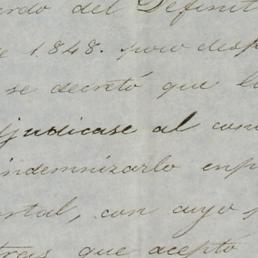 erdo del Definit
e 1848. pero desp
se decretó que la
djudicase al con
indemnizarlo en
ortal, con cuyo
tres que aceptó